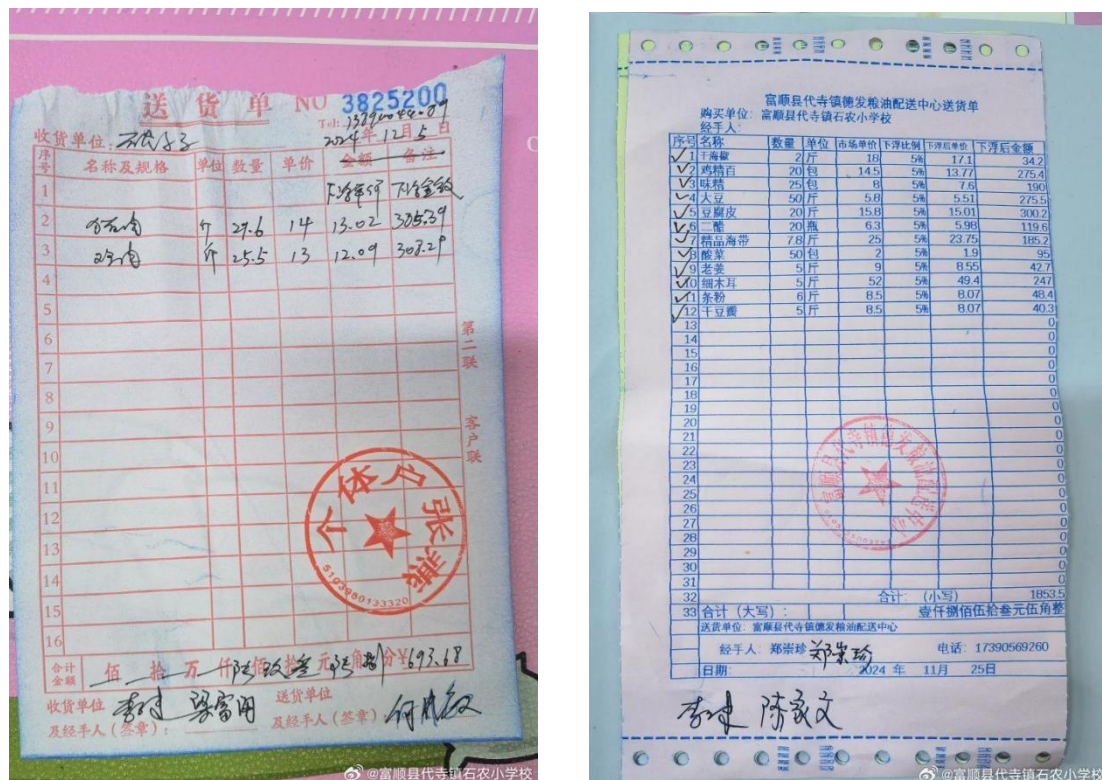 送货单 NO 3825200
Tel:
收货单位:
2024年12月5日
序号 名称及规格 单位 数量 单价 金额 备注
1
2 斤 27.6 14 13.02
3 斤 25.5 13 12.09 308.29
4
5
6
7
8
9
10
11
12
13
14
15
16
第二联 客户联
合计金额 佰 拾 万 仟 佰 拾 元 角 分 ¥693.68
收货单位及经手人(签章):
送货单位及经手人(签章):
个体户张燕
5103980133320
@富顺县代寺镇石农小学校
富顺县代寺镇德发粮油配送中心送货单
购买单位: 富顺县代寺镇石农小学校
经手人:
序号 名称 数量 单位 市场单价 下浮比例 下浮后单价 下浮后金额
1 干海椒 2 斤 18 5% 17.1 34.2
2 鸡精百 20 包 14.5 5% 13.77 275.4
3 味精 25 包 8 5% 7.6 190
4 大豆 50 斤 5.8 5% 5.51 275.5
5 豆腐皮 20 斤 15.8 5% 15.01 300.2
6 二醋 20 瓶 6.3 5% 5.98 119.6
7 精品海带 7.8 斤 25 5% 23.75 185.2
8 酸菜 50 包 2 5% 1.9 95
9 老姜 5 斤 9 5% 8.55 42.7
10 细木耳 5 斤 52 5% 49.4 247
11 条粉 6 斤 8.5 5% 8.07 48.4
12 干豆瓣 5 斤 8.5 5% 8.07 40.3
13 0
14 0
15 0
16 0
17 0
18 0
19 0
20 0
21 0
22 0
23 0
24 0
25 0
26 0
27 0
28 0
29 0
30 0
31 0
32 合计: (小写) 1853.5
33 合计(大写): 壹仟捌佰伍拾叁元伍角整
送货单位: 富顺县代寺镇德发粮油配送中心
经手人: 郑崇珍 郑崇珍 电话: 17390569260
日期: 2024 年 11月 25日
陈家文
富顺县代寺镇德发粮油配送中心
@富顺县代寺镇石农小学校